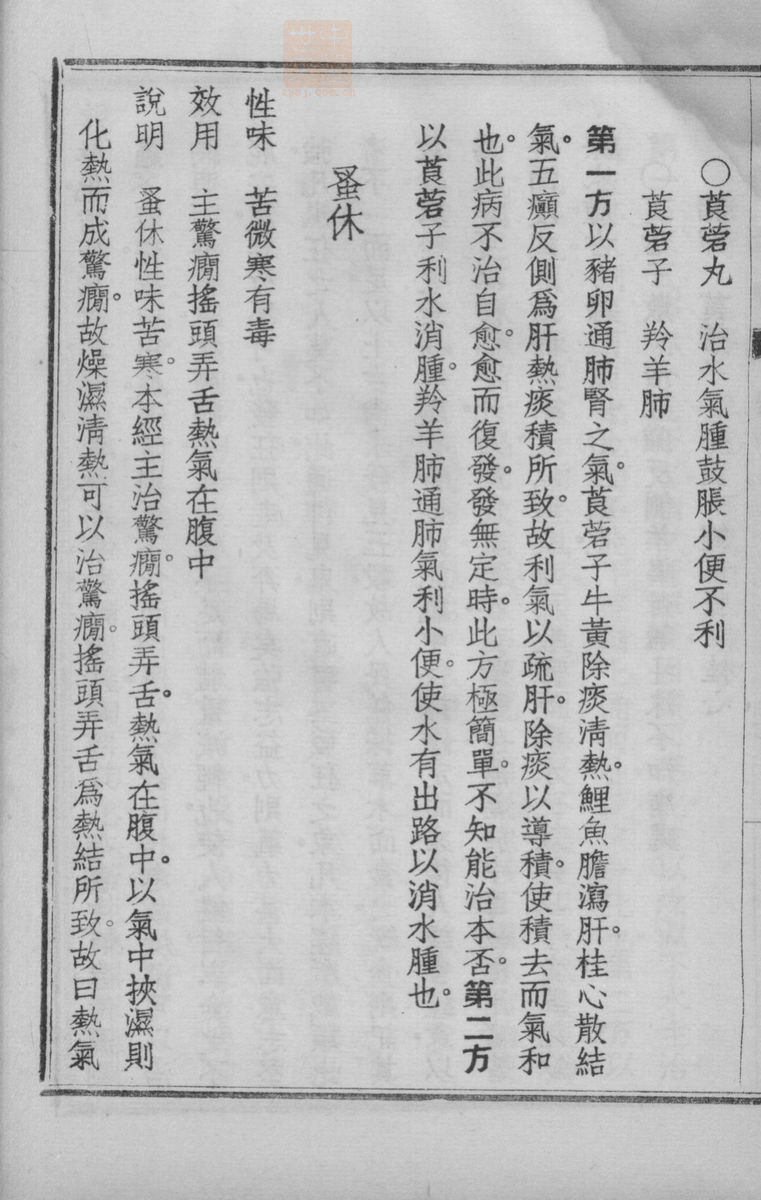 ○莨菪丸　治水氣腫鼓脹小便不利
莨菪子　羚羊肺
第一方以豬卵通肺腎之氣。莨菪子牛黃除痰淸熱。鯉魚膽瀉肝。桂心散結
氣。五癲反側爲肝熱痰積所致。故利氣以疏肝。除痰以導積。使積去而氣和
也。此病不治自愈。愈而復發。發無定時。此方極簡單。不知能治本否。第二方
以莨菪子利水消腫。羚羊肺通肺氣利小便。使水有出路以消水腫也。
蚤休
性味　苦微寒有毒
效用　主驚癇搖頭弄舌熱氣在腹中
說明　蚤休性味苦寒。本經主治驚癇。搖頭弄舌。熱氣在腹中。以氣中挾濕則
化熱而成驚癇。故燥濕淸熱可以治驚癇。搖頭弄舌爲熱結所致。故曰熱氣